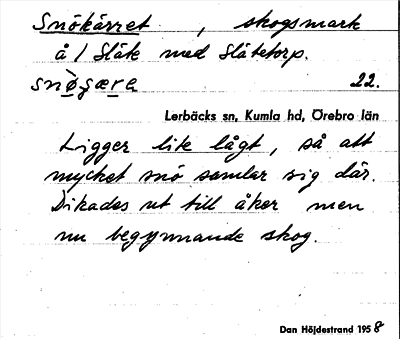 Snökärret , skogsmark
å 1 Slåte med Slåtetorp.
snø̀ʒæra 22.
Lerbäcks sn, Kumla hd, Örebro län
Ligger lite lågt, så att
mycket snö samlar sig där.
Dikades ut till åker men
nu begynnande skog.
Dan Höjdestrand 1958